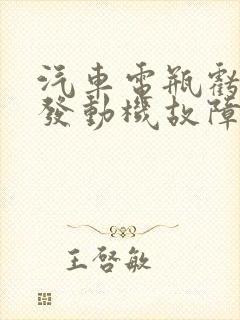 汽車電瓶虧
發動機故障
王啓敏